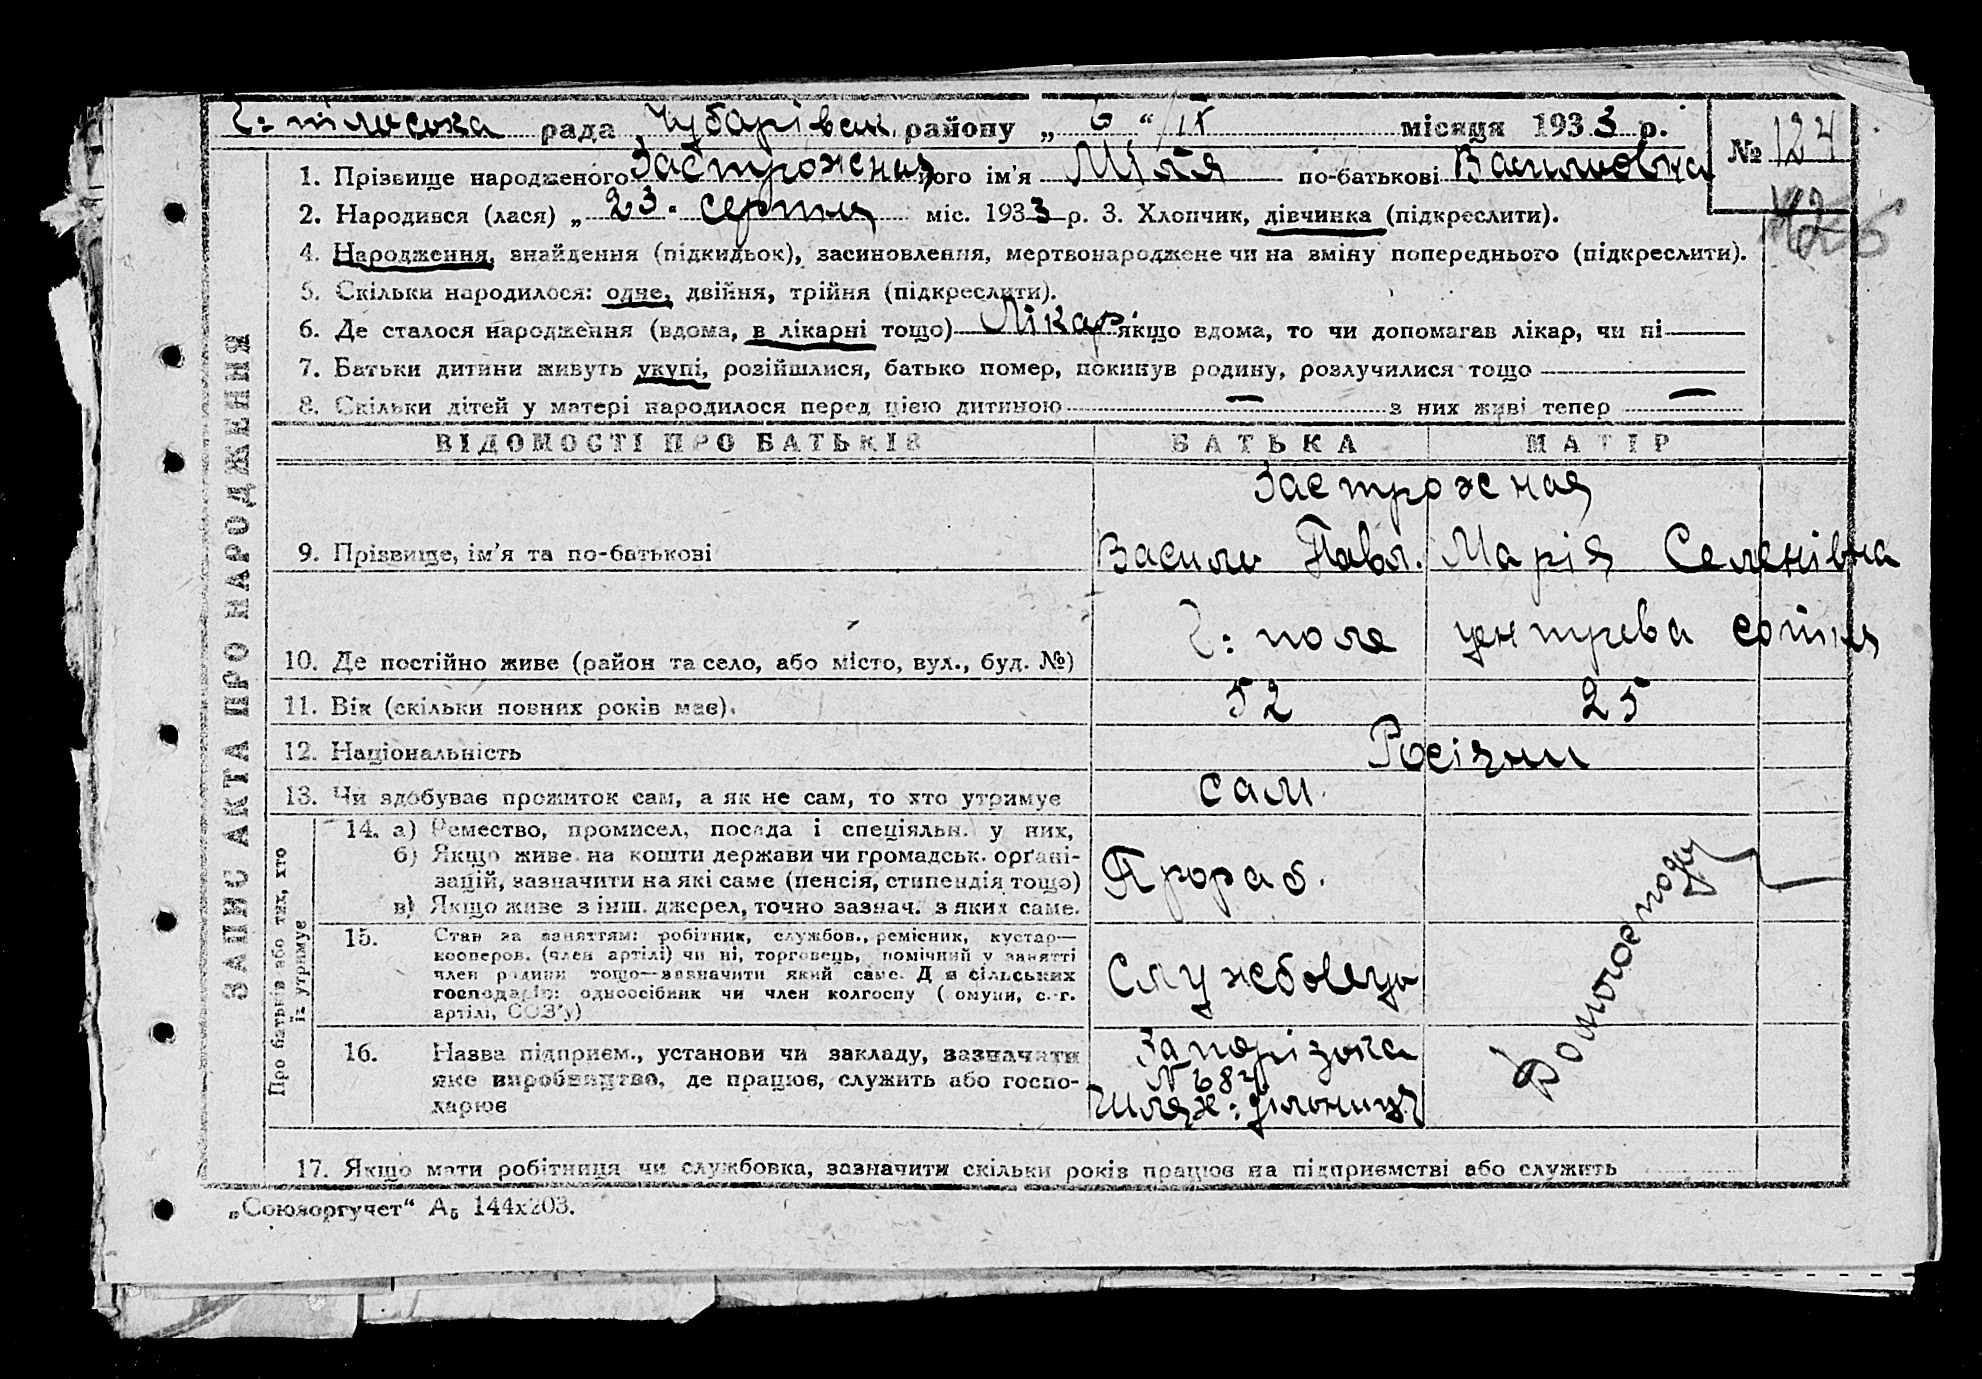 Ч: пільська рада Чубарівськ. району „ 6 “ ІХ місяця 1933 р. № 124
1. Прізвище народженого Застрожная його ім'я Міля по-батькові Василиовна
2. Народився (лася) „ 23. серпня міс. 1933 р. 3. Хлопчик, дівчинка (підкреслити).
125
4. Народження, знайдення (підкидьок), засиновлення, мертвонароджене чи на зміну попереднього (підкреслити).
5. Скільки народилося: одне, двійня, трійня (підкреслити).
6. Де сталося народження (вдома, в лікарні тощо) Лікар. якщо вдома, то чи допомагав лікар, чи ні
7. Батьки дитини живуть укупі, розійшлися, батько помер, покинув родину, розлучилися тощо
8. Скільки дітей у матері народилося перед цією дитиною — з них живі тепер —
ЗАПИС АКТА ПРО НАРОДЖЕННЯ
ВІДОМОСТІ ПРО БАТЬКІВ БАТЬКА МАТІР
Застрожная
9. Прізвище, ім'я та по-батькові Василь Павл. Марія Семенівна
10. Де постійно живе (район та село, або місто, вул., буд. №) Ч: поле центрева сотня
11. Вік (скільки повних років має). 52 25
12. Національність Росіяни
13. Чи здобуває прожиток сам, а як не сам, то хто утримує сам.
Про батьків або тих, хто
їх утримує
14. а) Ремество, промисел, посада і спеціяльн. у них,
б) Якщо живе на кошти держави чи громадськ. орґані-
зацій, зазначити на які саме (пенсія, стипендія тощо)
в) Якщо живе з інш. джерел, точно зазнач. з яких саме.
Прораб.
15. Стан за заняттям: робітник, службов., ремісник, кустар—
кооперов. (член артілі) чи ні, торговець, помічний у занятті
член родини тощо—зазначити який саме. Для сільських
господарів: одноосібник чи член колгоспу (комуни, с.-г.
артілі, СОЗ'у)
Службовець
16. Назва підприєм., установи чи закладу, зазначити
яке виробництво, де працює, служить або госпо-
дарює
Запорізька
№ 684
шлях: дільниця
Домогосподу
17. Якщо мати робітниця чи службовка, зазначити скільки років працює на підприємстві або служить
„Союзоргучет“ А₅ 144х203.